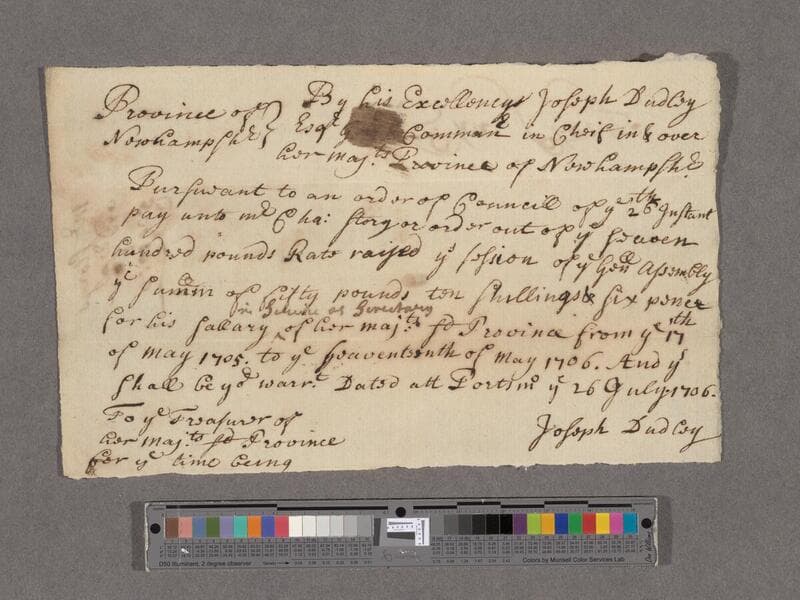 Province of } By his Excellency Joseph Dudley
Newhampshr } Esqr Commandr in Cheif in & over
her majts Province of Newhampshr
Pursuant to an order of Councill of ye 26th Instant
pay unto mr Cha: Story or order out of ye seaven
hundred pounds Rate raised ye session of ye Genll Assembly
ye summ of fifty pounds ten shillings & six pence
in Service as Secretary
for his sallary ^ of her majts sd Province from ye 17th
of may 1705. to ye seaventeenth of may 1706. And ys
shall be yor warrt. Dated att Portsmo ye 26 July. 1706.
To ye Treasurer of
her majts sd Province
for ye time being
Joseph Dudley
D50 Illuminant, 2 degree observer
Density
Colors by Munsell Color Services Lab